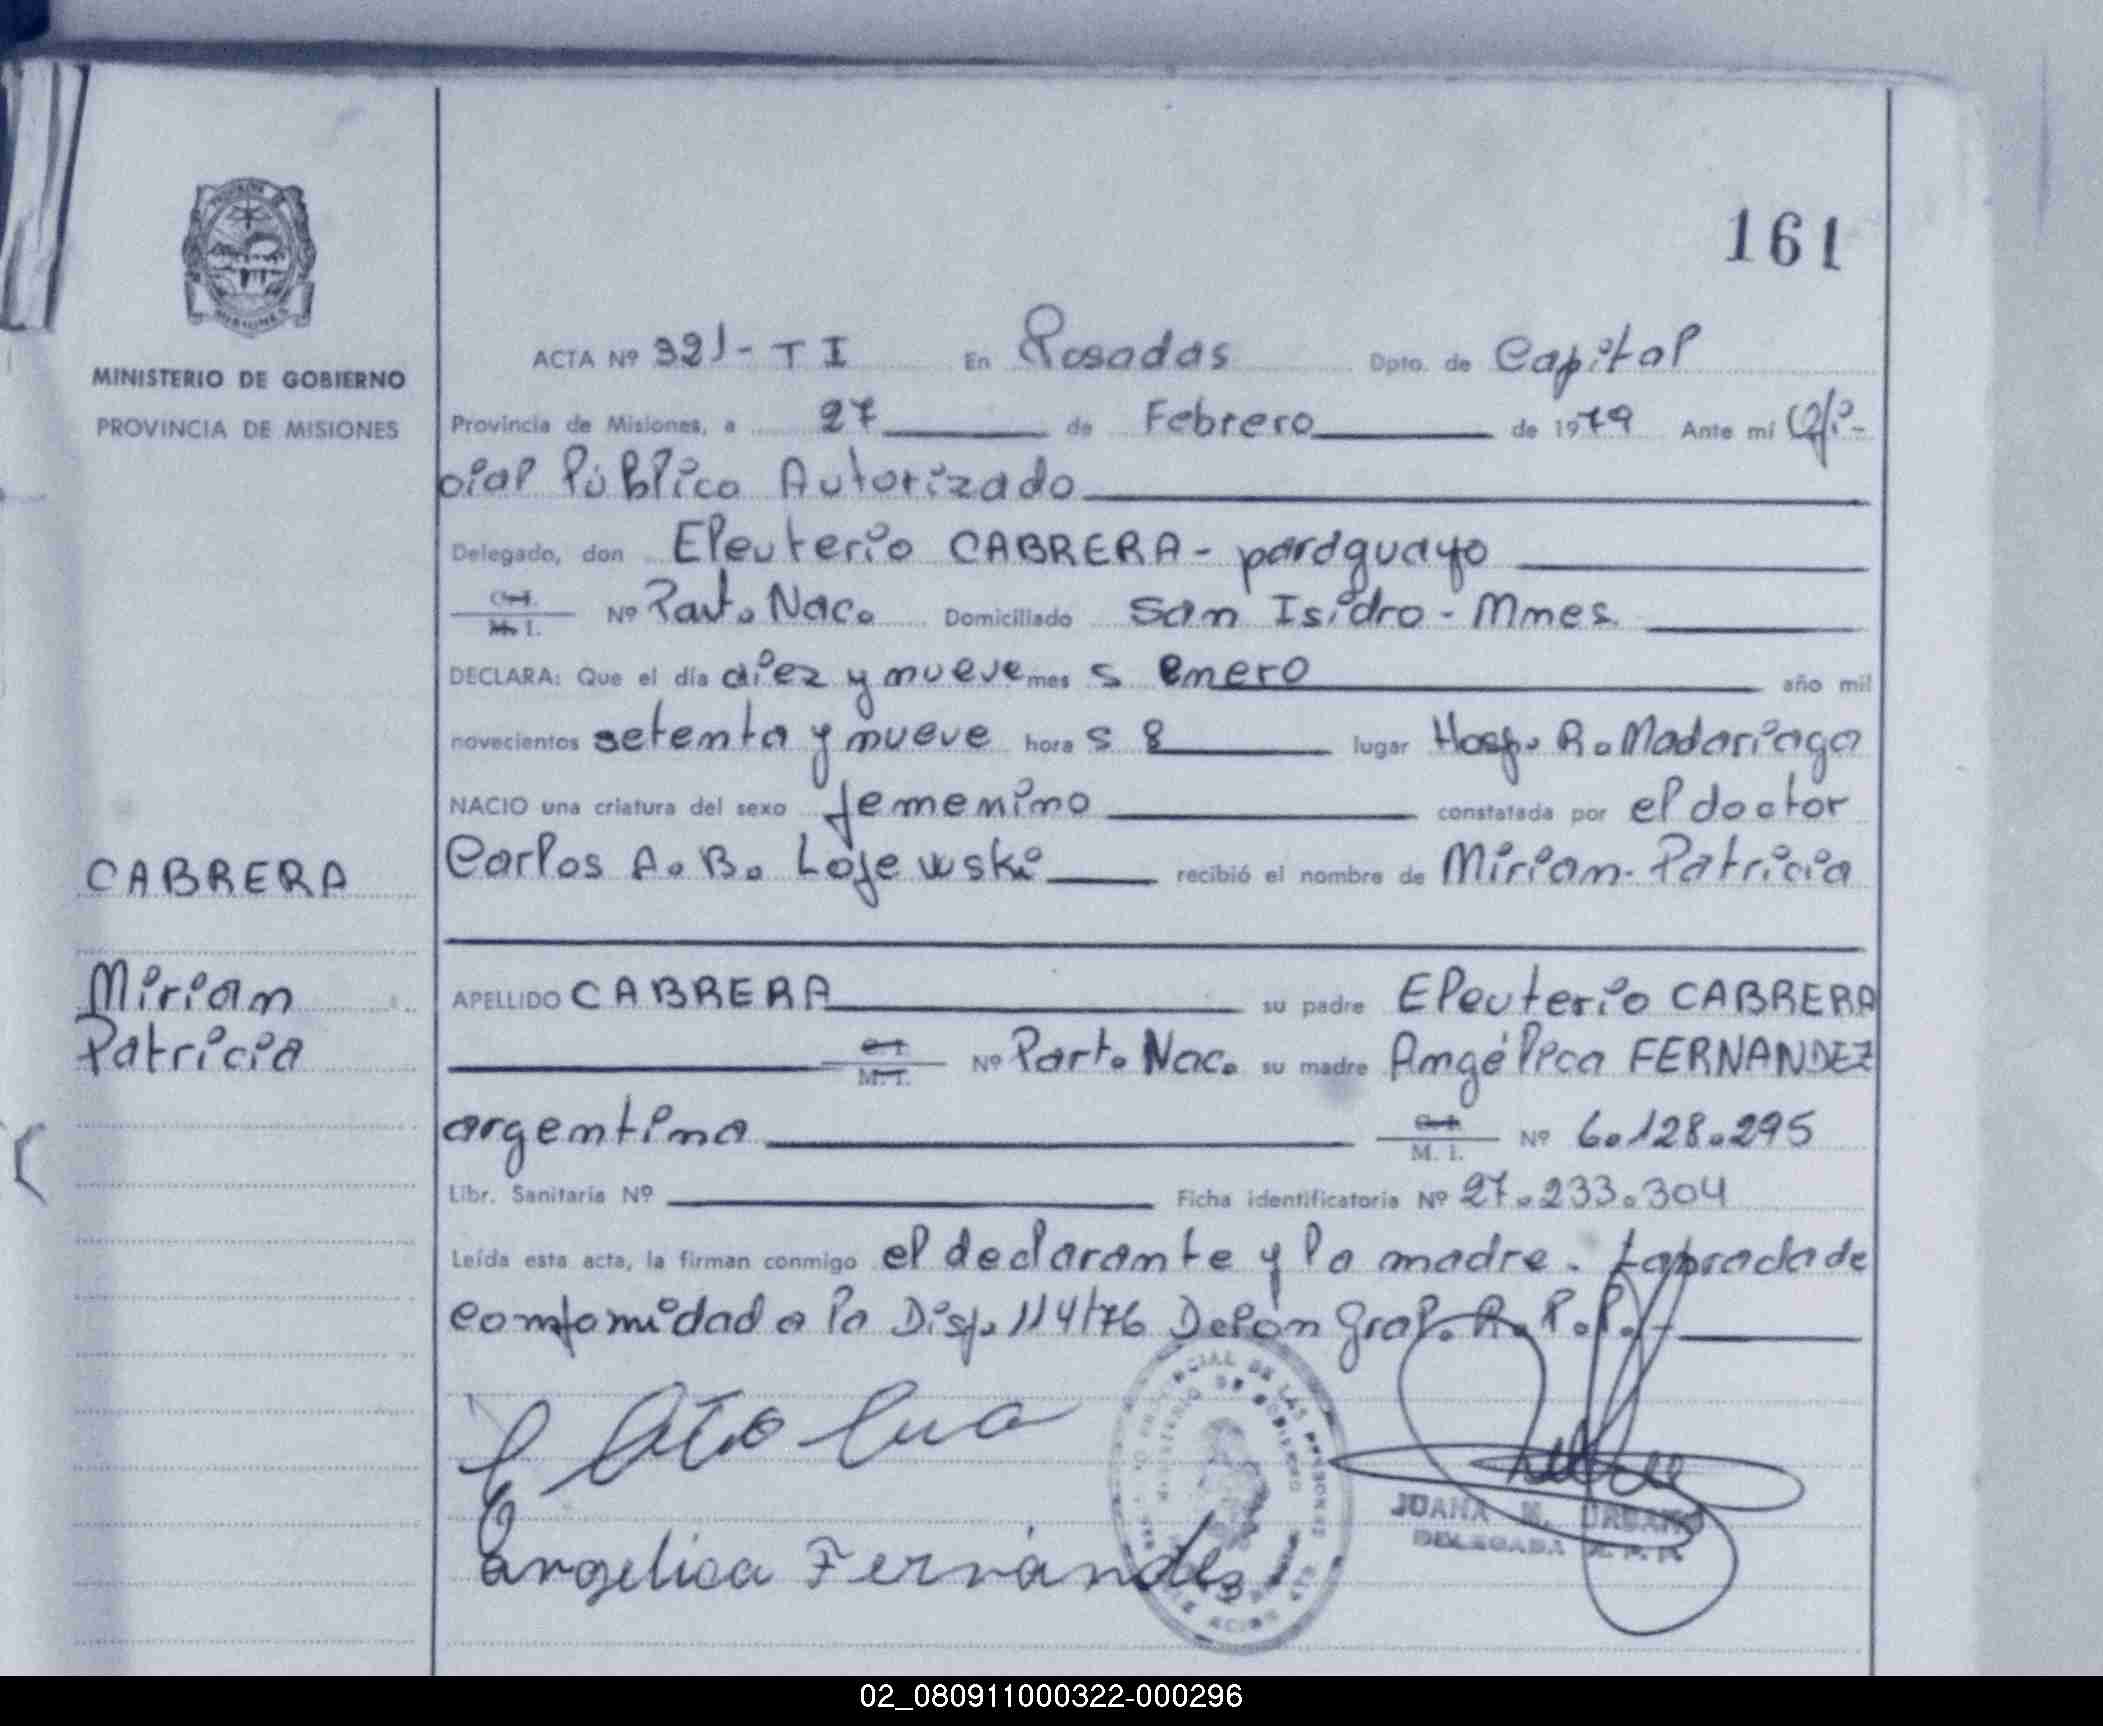 161
MINISTERIO DE GOBIERNO
PROVINCIA DE MISIONES
ACTA Nº 321-TI En Posadas Dpto. de Capital
Provincia de Misiones, a 27 de Febrero de 1979 Ante mí Ofi-
cial Público Autorizado
Delegado, don Eleuterio CABRERA - paraguayo
C.I.
M. I. Nº Part. Nac. Domiciliado San Isidro - Mnes.
DECLARA: Que el día diez y nueve mes s enero año mil
novecientos setenta y nueve hora s 8 lugar Hosp. R. Madariaga
NACIO una criatura del sexo femenino constatada por el doctor
CABRERA
Carlos A. B. Lojewski recibió el nombre de Miriam Patricia
Miriam
Patricia
APELLIDO CABRERA su padre Eleuterio CABRERA
C.I.
M. I. Nº Part. Nac. su madre Angélica FERNANDEZ
argentina C.I.
M. I. Nº 6.128.295
Libr. Sanitaria Nº Ficha identificatoria Nº 27.233.304
Leída esta acta, la firman conmigo el declarante y la madre. Labrada de
conformidad a la Disp. 114/76 Delón Gral. R.P.P.-
Angelica Fernández
JUANA M. URBANO
DELEGADA R. P. P.
02_080911000322-000296